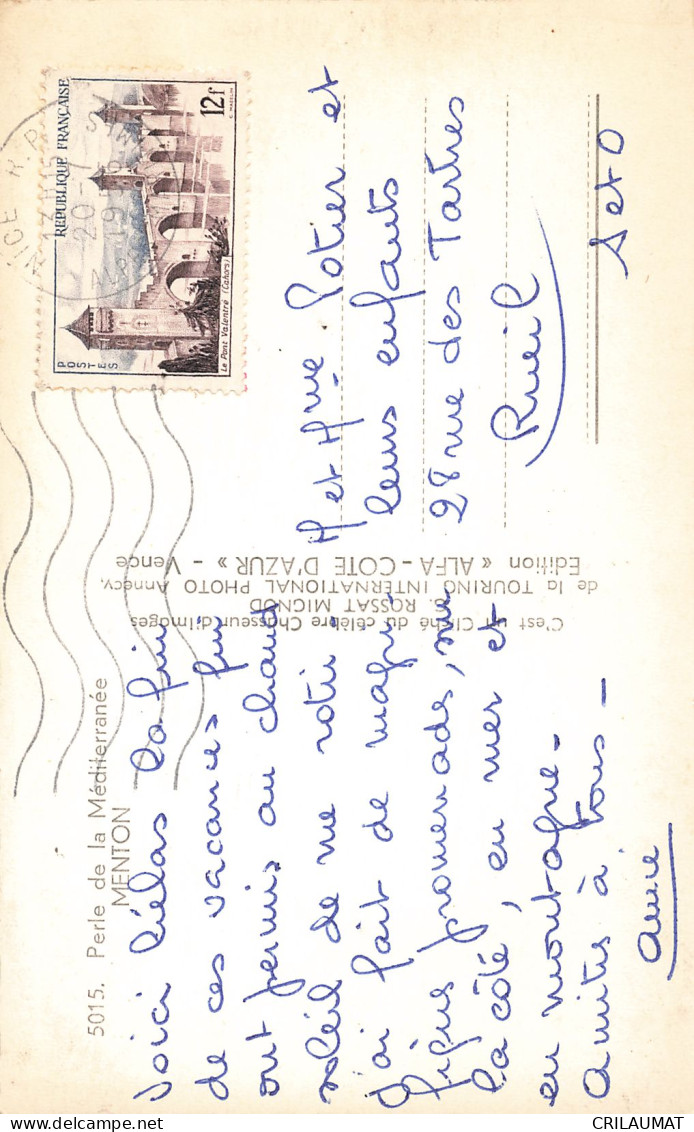 5015. Perle de la Méditerranée
MENTON
Voici hélas la fin
de ces vacances qui
ont permis au chaud
soleil de me rotir.
J'ai fait de magni-
fiques promenades, sur
la côté, en mer et
en montagne.
Amitiés à tous -
Annie
C'est un Cliché du célèbre Chasseur d'Images
ROSSAT MIGNOD
de la TOURING INTERNATIONAL PHOTO Annecy,
Edition « ALFA - COTE D'AZUR » - Vence
NICE R.P.
13H15
20-7
19
ALPES
REPUBLIQUE FRANÇAISE
12f
POSTES
Le Pont Valentré (Cahors)
M et Mme Potier et
leurs enfants
28 rue des Tartres
Rueil
S et O
CRILAUMAT